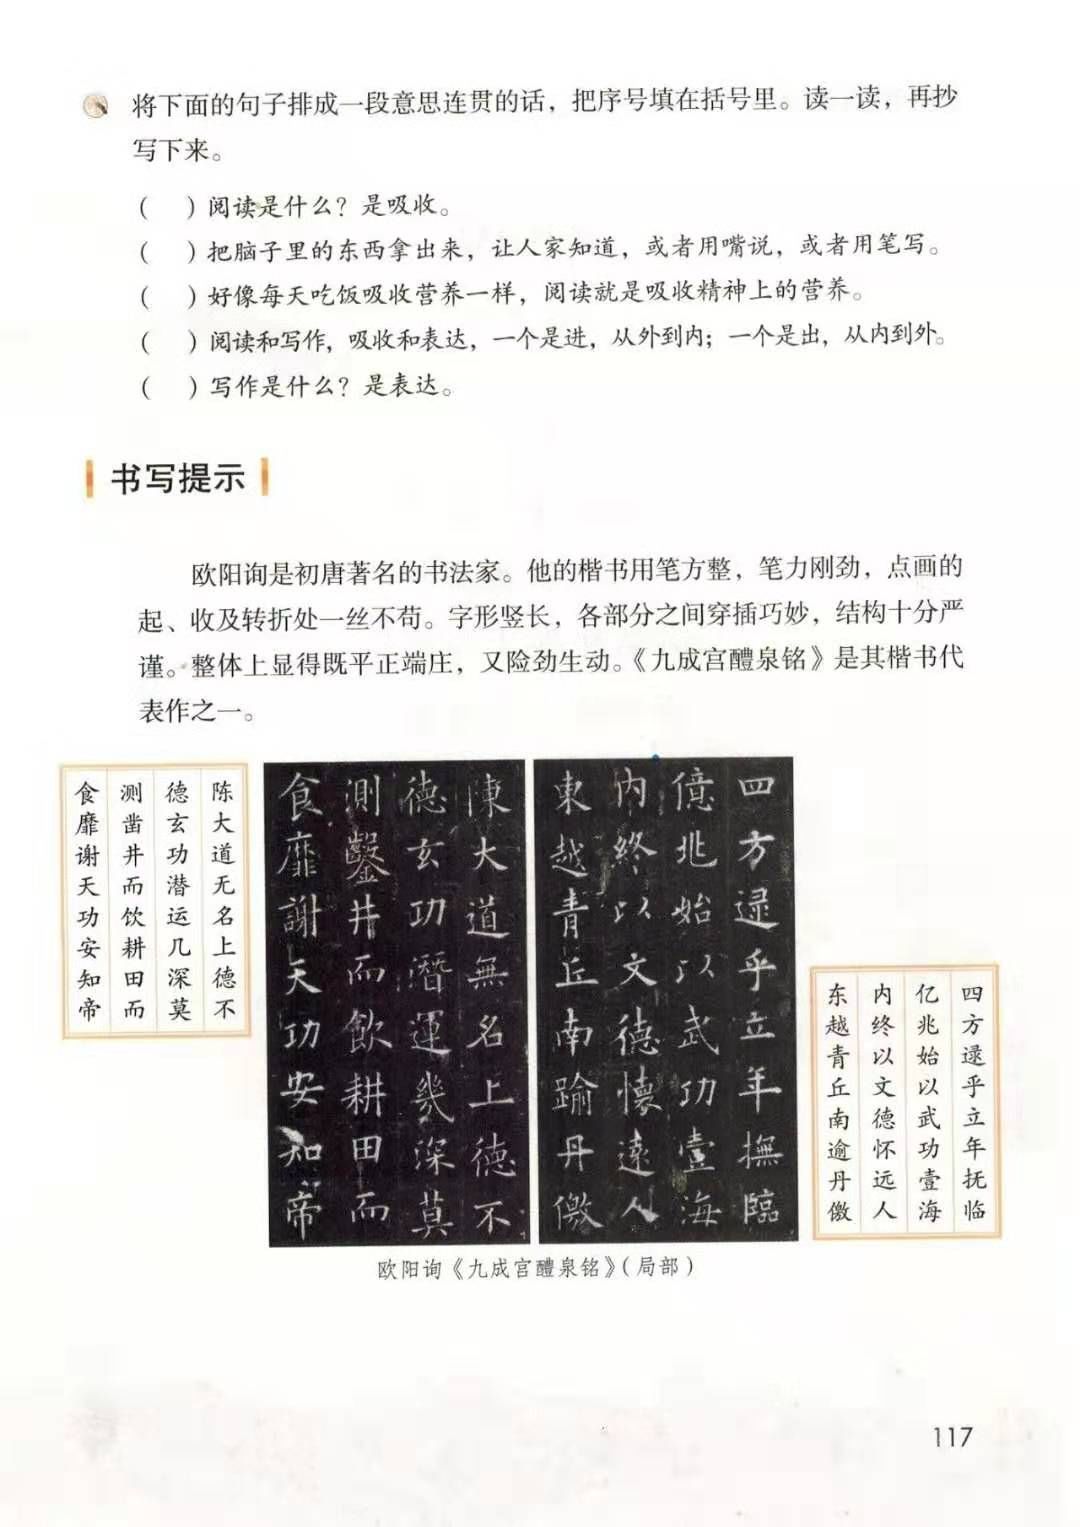 将下面的句子排成一段意思连贯的话，把序号填在括号里。读一读，再抄
写下来。
（ ）阅读是什么？是吸收。
（ ）把脑子里的东西拿出来，让人家知道，或者用嘴说，或者用笔写。
（ ）好像每天吃饭吸收营养一样，阅读就是吸收精神上的营养。
（ ）阅读和写作，吸收和表达，一个是进，从外到内；一个是出，从内到外。
（ ）写作是什么？是表达。
书写提示
欧阳询是初唐著名的书法家。他的楷书用笔方整，笔力刚劲，点画的
起、收及转折处一丝不苟。字形竖长，各部分之间穿插巧妙，结构十分严
谨。整体上显得既平正端庄，又险劲生动。《九成宫醴泉铭》是其楷书代
表作之一。
四方逯乎立年抚临
亿兆始以武功壹海
内终以文德怀远人
东越青丘南逾丹儌
四方逯乎立年撫臨
億兆始以武功壹海
内終以文德懷遠人
東越青丘南踰丹儌
陳大道無名上德不
德玄功潛運幾深莫
測鑿井而飲耕田而
食靡謝天功安知帝
陈大道无名上德不
德玄功潜运几深莫
测凿井而饮耕田而
食靡谢天功安知帝
欧阳询《九成宫醴泉铭》（局部）
117